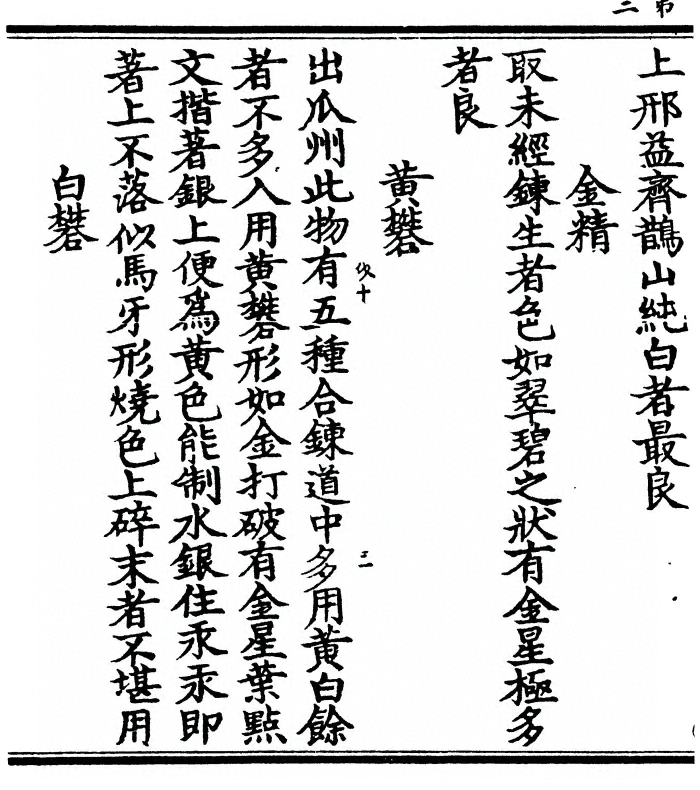 弟二
上邢益齊鵲山純白者最良
金精
取未經鍊生者色如翠碧之狀有金星極多
者良
黃礬
出瓜州此物有五種合鍊道中多用黃白餘
似十
三
者不多入用黃礬形如金打破有金星葉點
文揩著銀上便爲黃色能制水銀住汞汞即
著上不落似馬牙形燒色上碎末者不堪用
白礬